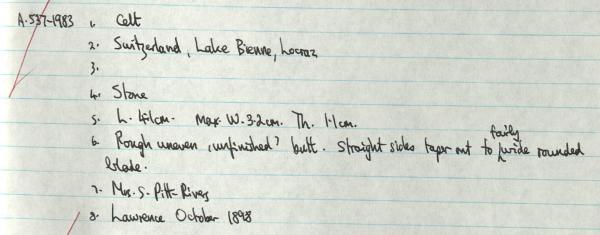 A.537-1983 1. Celt
2. Switzerland, Lake Bienne, Locraz
3.
4. Stone
5. L. 4.1cm. Max. W. 3.2cm. Th. 1.1cm.
6. Rough uneven, unfinished? butt. Straight sides taper out to fairly wide rounded
blade.
7. Mrs. S. Pitt-Rivers
8. Lawrence October 1898